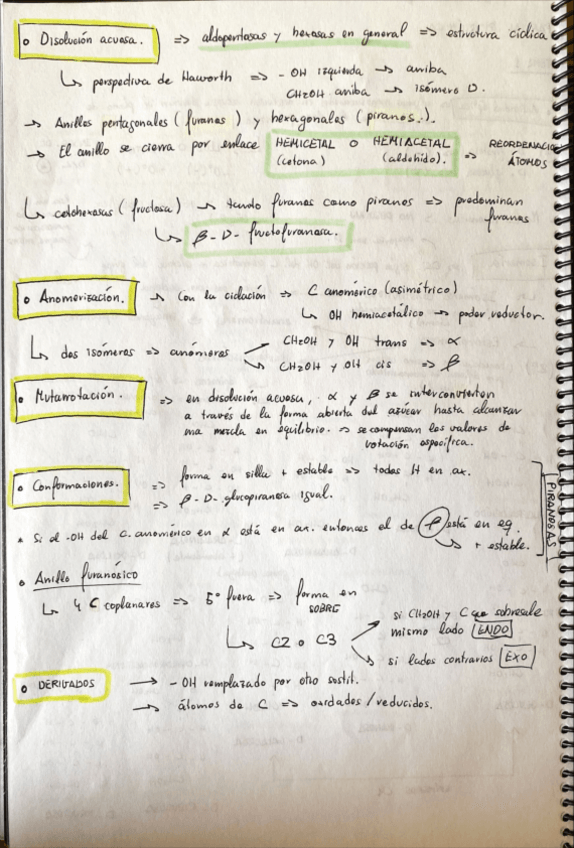 • Disolución acuosa. => aldopentosas y hexosas en general => estructura cíclica
↳ perspectiva de Haworth => -OH izquierda → arriba
CH2OH arriba → isómero D.
→ Anillos pentagonales (furanos) y hexagonales (piranos).
→ El anillo se cierra por enlace HEMICETAL O HEMIACETAL => REORDENACIÓN
(cetona) (aldehído). ÁTOMOS
↳ cetohexosas (fructosa) → tando furanos como piranos => predominan
furanos
↳ β-D-fructofuranosa.
• Anomerización. → Con la ciclación => C anomérico (asimétrico)
↳ OH hemiacetálico → poder reductor.
↳ dos isómeros => anómeros CH2OH y OH trans => α
CH2OH y OH cis => β
• Mutarrotación. => en disolución acuosa, α y β se interconvierten
a través de la forma abierta del azúcar hasta alcanzar
una mezcla en equilibrio. => se compensan los valores de
rotación específica.
• Conformaciones. => forma en silla + estable => todas H en ax.
=> β-D-glucopiranosa igual.
PIRANOSAS
* Si el -OH del C. anomérico en α está en ax. entonces el de β está en eq.
↳ + estable.
• Anillo furanósico
↳ 4 C coplanares => 5º fuera => forma en
SOBRE
↳ C2 o C3 si CH2OH y C que sobresale
mismo lado ENDO
si lados contrarios EXO
• DERIVADOS → -OH remplazado por otro sustit.
→ átomos de C => oxidados/reducidos.